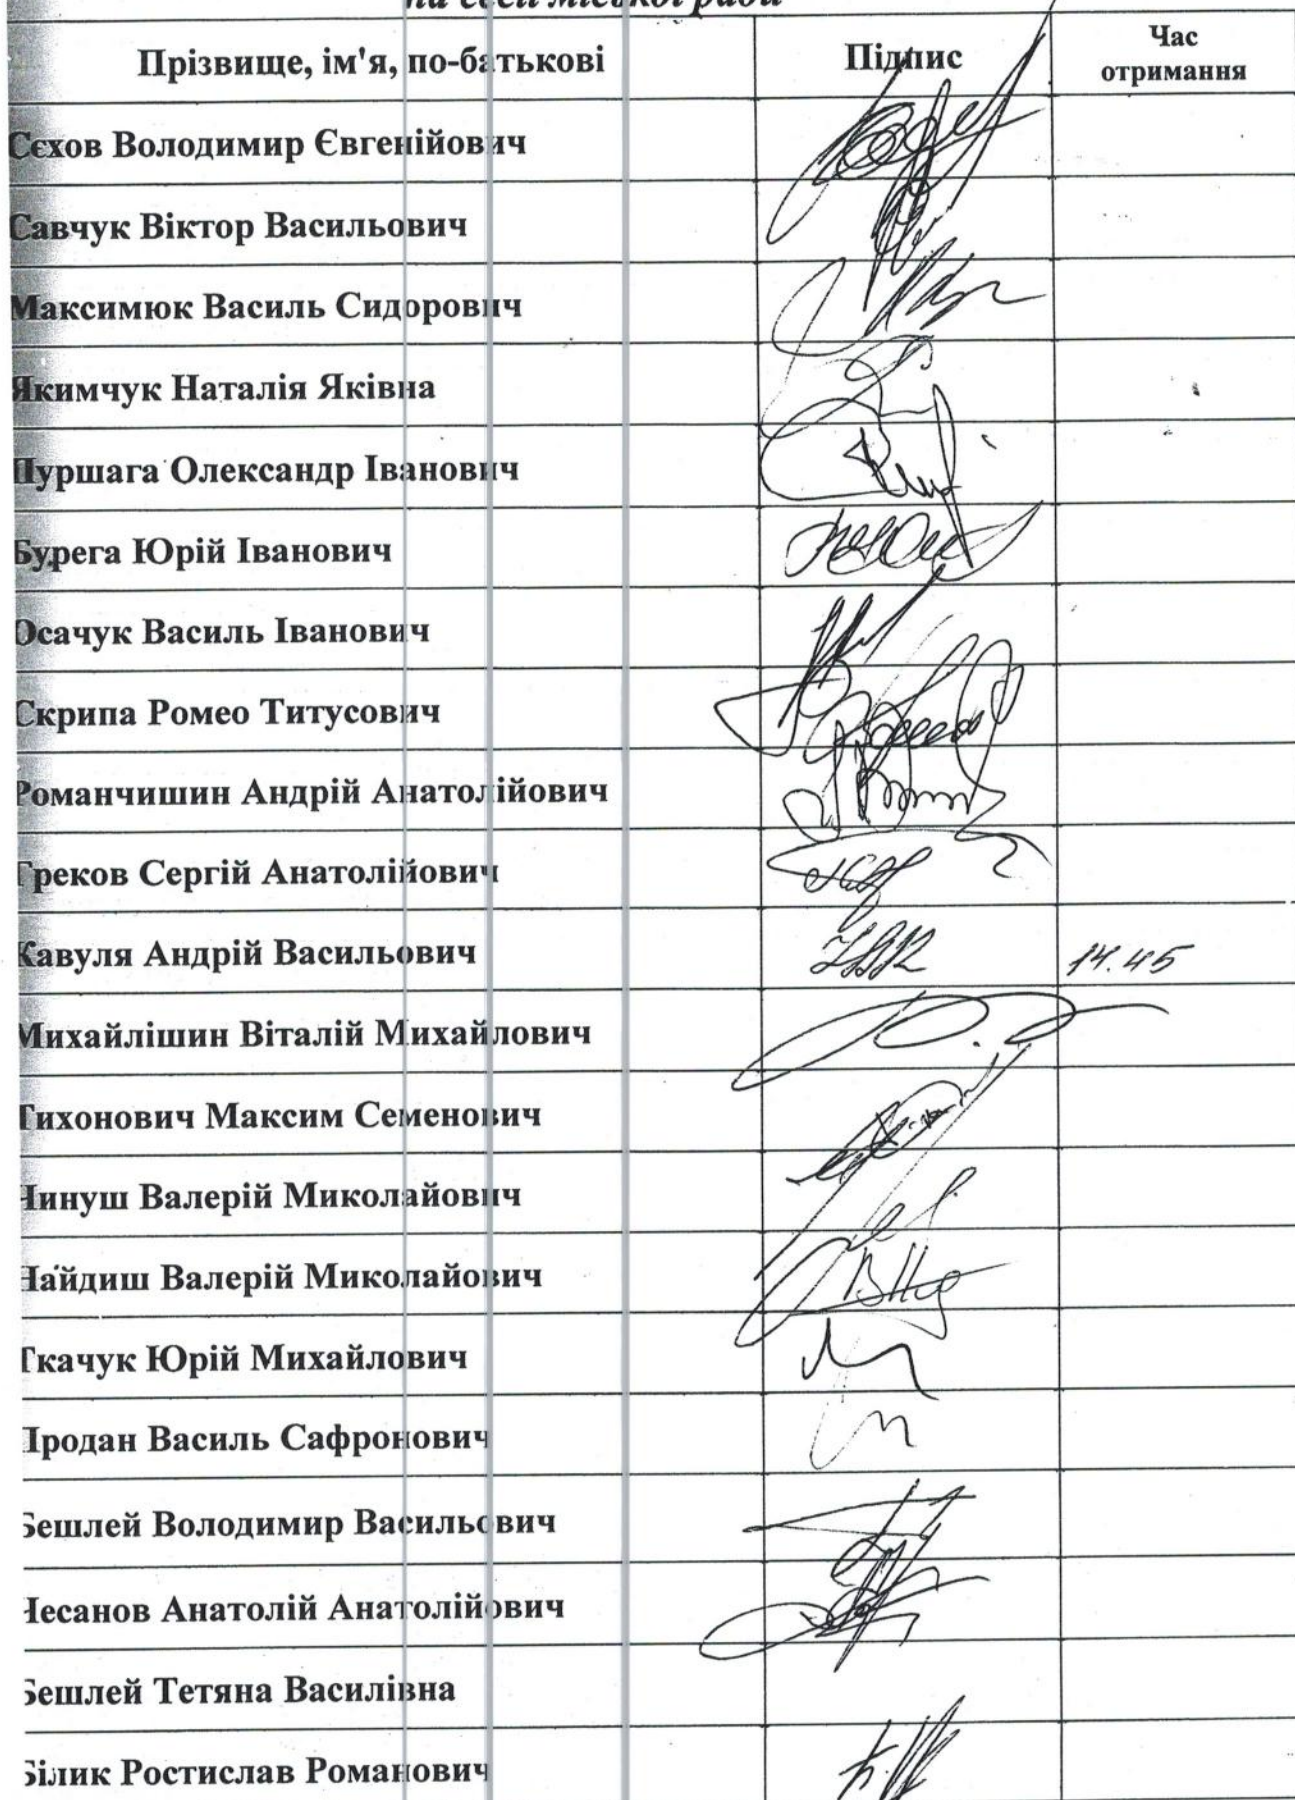 на сесії міської ради
Прізвище, ім'я, по-батькові Підпис Час
отримання
Сєхов Володимир Євгенійович
Савчук Віктор Васильович
Максимюк Василь Сидорович
Якимчук Наталія Яківна
Пуршага Олександр Іванович
Бурега Юрій Іванович
Осачук Василь Іванович
Скрипа Ромео Титусович
Романчишин Андрій Анатолійович
Греков Сергій Анатолійович
Кавуля Андрій Васильович 14.45
Михайлішин Віталій Михайлович
Тихонович Максим Семенович
Чинуш Валерій Миколайович
Найдиш Валерій Миколайович
Ткачук Юрій Михайлович
Продан Василь Сафронович
Бешлей Володимир Васильович
Чесанов Анатолій Анатолійович
Бешлей Тетяна Василівна
Білик Ростислав Романович